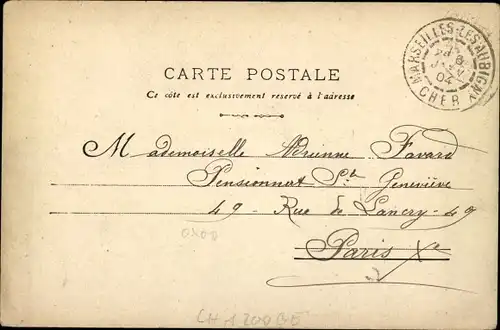 MARSEILLES-LES-AUBIGNY
JANV
04
CHER
CARTE POSTALE
Ce côté est exclusivement reservé à l'adresse
Mademoiselle Adrienne Favard
Pensionnat Ste Geneviève
49 - Rue de Lancry - 49
Paris Xe
0508
CH1200BE